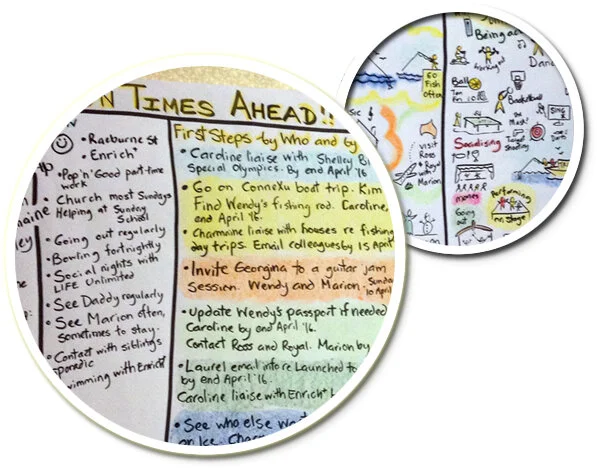 N TIMES AHEAD!!
• Raeburne St
Enrich+
• 'Pop'n'Good part-time
work
• Church most Sundays
Helping at Sunday
School
• Going out regularly
• Bowling fortnightly
• Social nights with
LIFE Unlimited
• See Daddy regularly
• See Marion often,
sometimes to stay.
• Contact with siblings
sporadic
swimming with Enrich+
First Steps-by Who and by
• Caroline liaise with Shelley B
Special Olympics. By end April '16
• Go on Connexu boat trip. Kim
Find Wendy's fishing rod. Caroline,
end April '16.
• Charmaine liaise with houses re fishing
day trips. Email colleagues by 15 April
• Invite Georgina to a guitar jam
session. Wendy and Marion. Sunday
10 April
• Update Wendy's passport if needed
Caroline by end April '16.
Contact Ross and Royal. Marion by
• Laurel email info re Launched to
by end April '16.
Caroline liaise with Enrich+
• See who else wa
on Ice.
Being a
Dan
Working out
GO
Fish
Often
Ball
Ten
Pin
Basketball
SING
visit
Ross
+ Royal
with
Marion
Target
Shooting
Socialising
money
Going
out
Performing
on stage